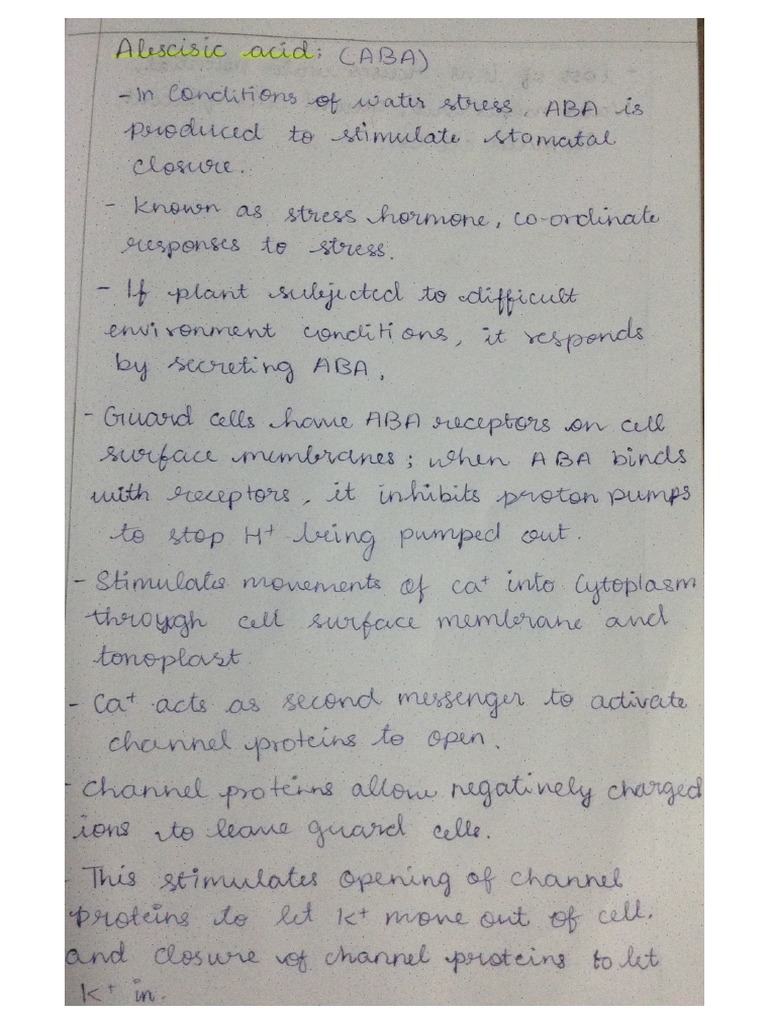 Abscisic acid: (ABA)
- In conditions of water stress, ABA is
produced to stimulate stomatal
closure.
- Known as stress hormone, co-ordinate
responses to stress.
- If plant subjected to difficult
environment conditions, it responds
by secreting ABA.
- Guard cells have ABA receptors on cell
surface membranes; when ABA binds
with receptors, it inhibits proton pumps
to stop H⁺ being pumped out.
- Stimulates movements of Ca⁺ into Cytoplasm
through cell surface membrane and
tonoplast
- Ca⁺ acts as second messenger to activate
channel proteins to open.
- Channel proteins allow negatively charged
ions to leave guard cells.
- This stimulates opening of channel
proteins to let K⁺ move out of cell.
and closure of channel proteins to let
K⁺ in.